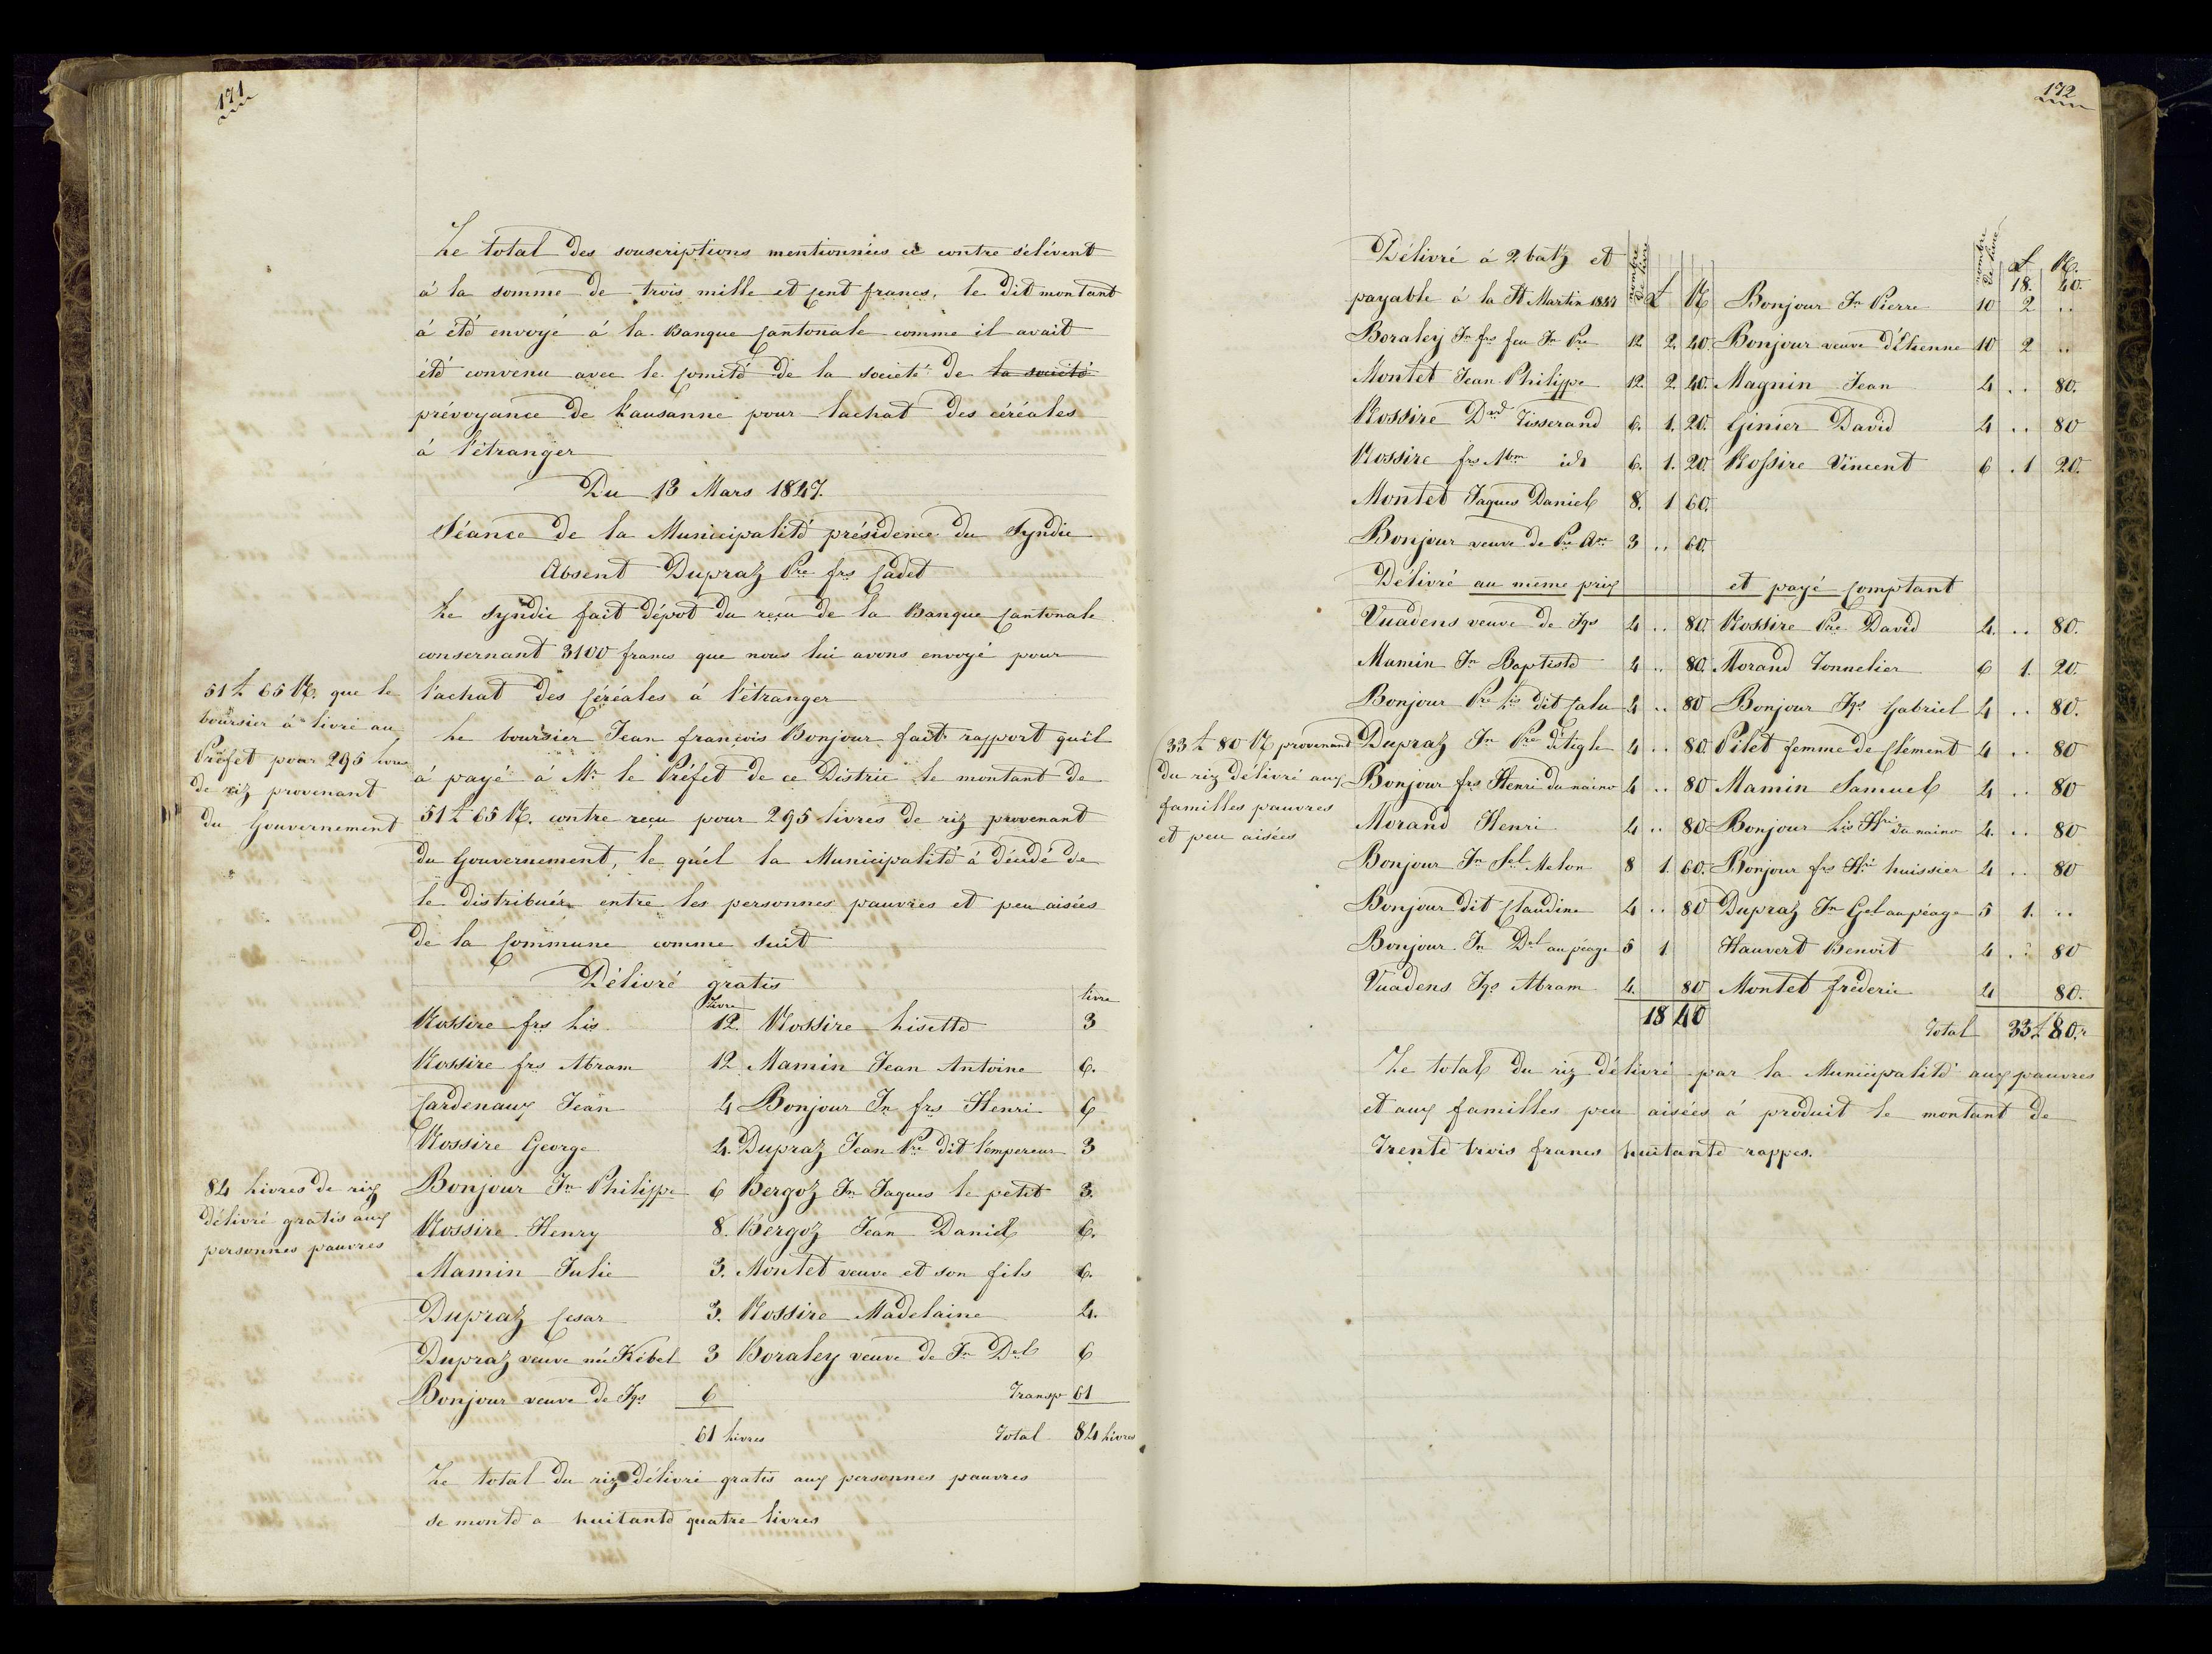 171
Le total des souscriptions mentionnées ci contre s'élèvent
à la somme de trois mille et cent francs, le dit montant
à été envoyé à la Banque Cantonale comme il avait
été convenu avec le Comité de la societé de la societé
prévoyance de Lausanne pour lachat des céréales
à l'étranger
Du 13 Mars 1847.
Séance de la Municipalité présidence du Syndic
Absent Dupraz Pre frs Cadet
Le Syndic fait dépot du reçu de la Banque Cantonale
consernant 3100 francs que nous lui avons envoyé pour
l'achat des Céréales à l'étranger
51 L 65 R. que le
boursier à livré au
Préfet pour 295 livres
de riz provenant
du Gouvernement
Le boursier Jean françois Bonjour fait rapport qu'il
à payé à Mr le Préfet de ce District le montant de
51 L 65 R. contre reçu pour 295 livres de riz provenant
du Gouvernement, le quel la Municipalité à décidé de
le distribuér entre les personnes pauvres et peu aisées
de la Commune comme suit
Délivré gratis
Livre livre
Rossire frs Ls 12. Rossire Lisette 3
Rossire frs Abram 12 Mamin Jean Antoine 6.
Cardenaux Jean 4 Bonjour Jn frs Henri 6
Rossire George 4. Dupraz Jean Pre dit l'empereur 3
84 Livres de riz
délivré gratis aux
personnes pauvres
Bonjour Jn Philippe 6 Bergoz Jn Jaques le petit 3.
Rossire Henry 8. Bergoz Jean Daniel 6.
Mamin Julie 3. Montet veuve et son fils 6.
Dupraz Cesar 3. Rossire Madelaine 4.
Dupraz veuve née Kébel 3 Boraley veuve de Jn Dl 6
Bonjour veuve de Jqs 6 Transp 61
61 Livres Total 84 Livres
Le total du riz délivré gratis aux personnes pauvres
se monte a huitante quatre livres
172
Délivré à 2 batz et nombre de livre nombre de livre L R.
18. 40.
payable à la St Martin 1847 L R Bonjour Jn Pierre 10 2 ..
Boraley Jn frs feu Jn Pre 12 2. 40. Bonjour veuve d'Etienne 10 2 ..
Montet Jean Philippe 12. 2. 40. Magnin Jean 4 .. 80.
Rossire Dvd Tisserand 6. 1. 20. Ginier David 4 .. 80
Rossire frs Abm id 6. 1. 20. Rossire Vincent 6 . 1 20.
Montet Jaques Daniel 8. 1 60.
Bonjour veuve de Pre Ane 3 .. 60.
Délivré au meme prix et payé Comptant
Vuadens veuve de Jqs 4 .. 80. Rossire Pre David 4. .. 80.
Mamin Jn Baptiste 4 .. 80. Morand Tonnelier 6 1. 20.
Bonjour Pre Ls dit Calu 4 .. 80 Bonjour Jqs Gabriel 4 .. 80.
(33 L 80 R provenant
du riz délivré aux
familles pauvres
et peu aisées
Dupraz Jn Pre d'étigle 4 .. 80. Pilet femme de Clément 4 .. 80
Bonjour frs Henri du naino 4 .. 80 Mamin Samuel 4 .. 80
Morand Henri 4 .. 80 Bonjour Ls Hri du naino 4. .. 80
Bonjour Jn Sl Melon 8 1. 60. Bonjour frs Hri huissier 4 .. 80
Bonjour dit Claudine 4 .. 80 Dupraz Jn Gel au péage 5 1. ..
Bonjour Jn Dl au péage 5 1. Hauvert Benoit 4 .. 80
Vuadens Jqs Abram 4. 80 Montet fréderic 4 80.
18 40 Total 33 L 80 r
Le total du riz délivré par la Municipalité aux pauvres
et aux familles peu aisées à produit le montant de
Trente trois francs huitante rappes.